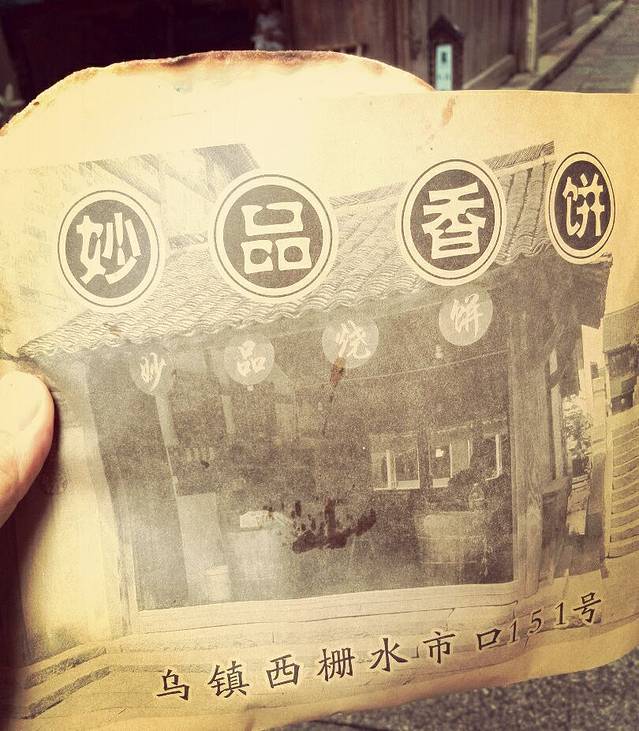 妙品香饼
妙品烧饼
乌镇西栅水市口151号